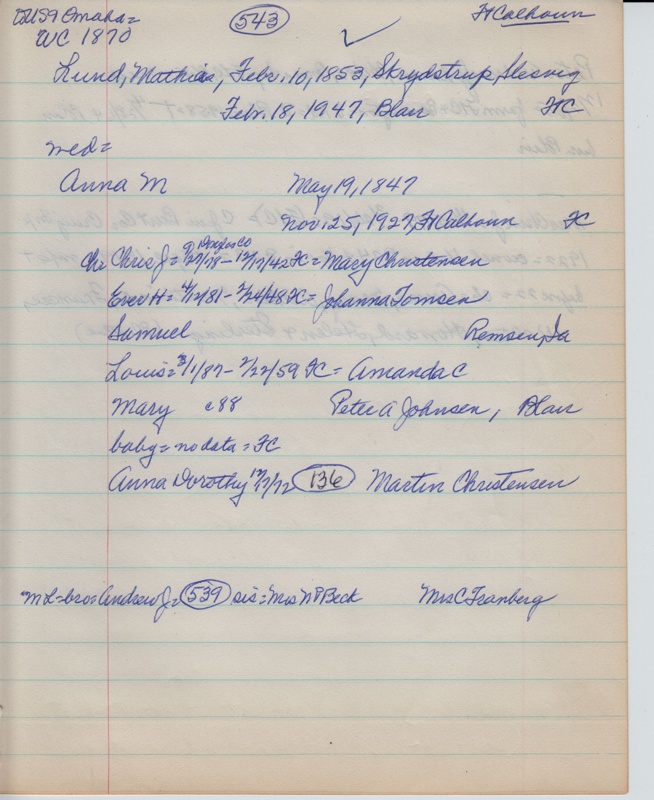 543 Ft Calhoun
WC 1870
Lund, Mathias, Febr. 10, 1853, Skrydstrup, Slesvig
Febr. 18, 1947, Blair FC
med=
Anna M May 19, 1847
Nov. 25, 1927, Ft Calhoun FC
Douglas CO
Ch: Chris J= 9/27/78 - 12/17/42 FC = Mary Christensen
Ever H= 4/12/81 - 2/24/48 FC = Johanna Tomsen
Samuel Remsen, Ia
Louis= 3/1/87 - 2/22/59 FC = Amanda C
Mary c 88 Peter A Johnsen, Blair
baby = no data = FC
Anna Dorothy 136 Martin Christensen
ML=bro=Andrew J= 539 sis= Mrs N P Beck Mrs C Franberg